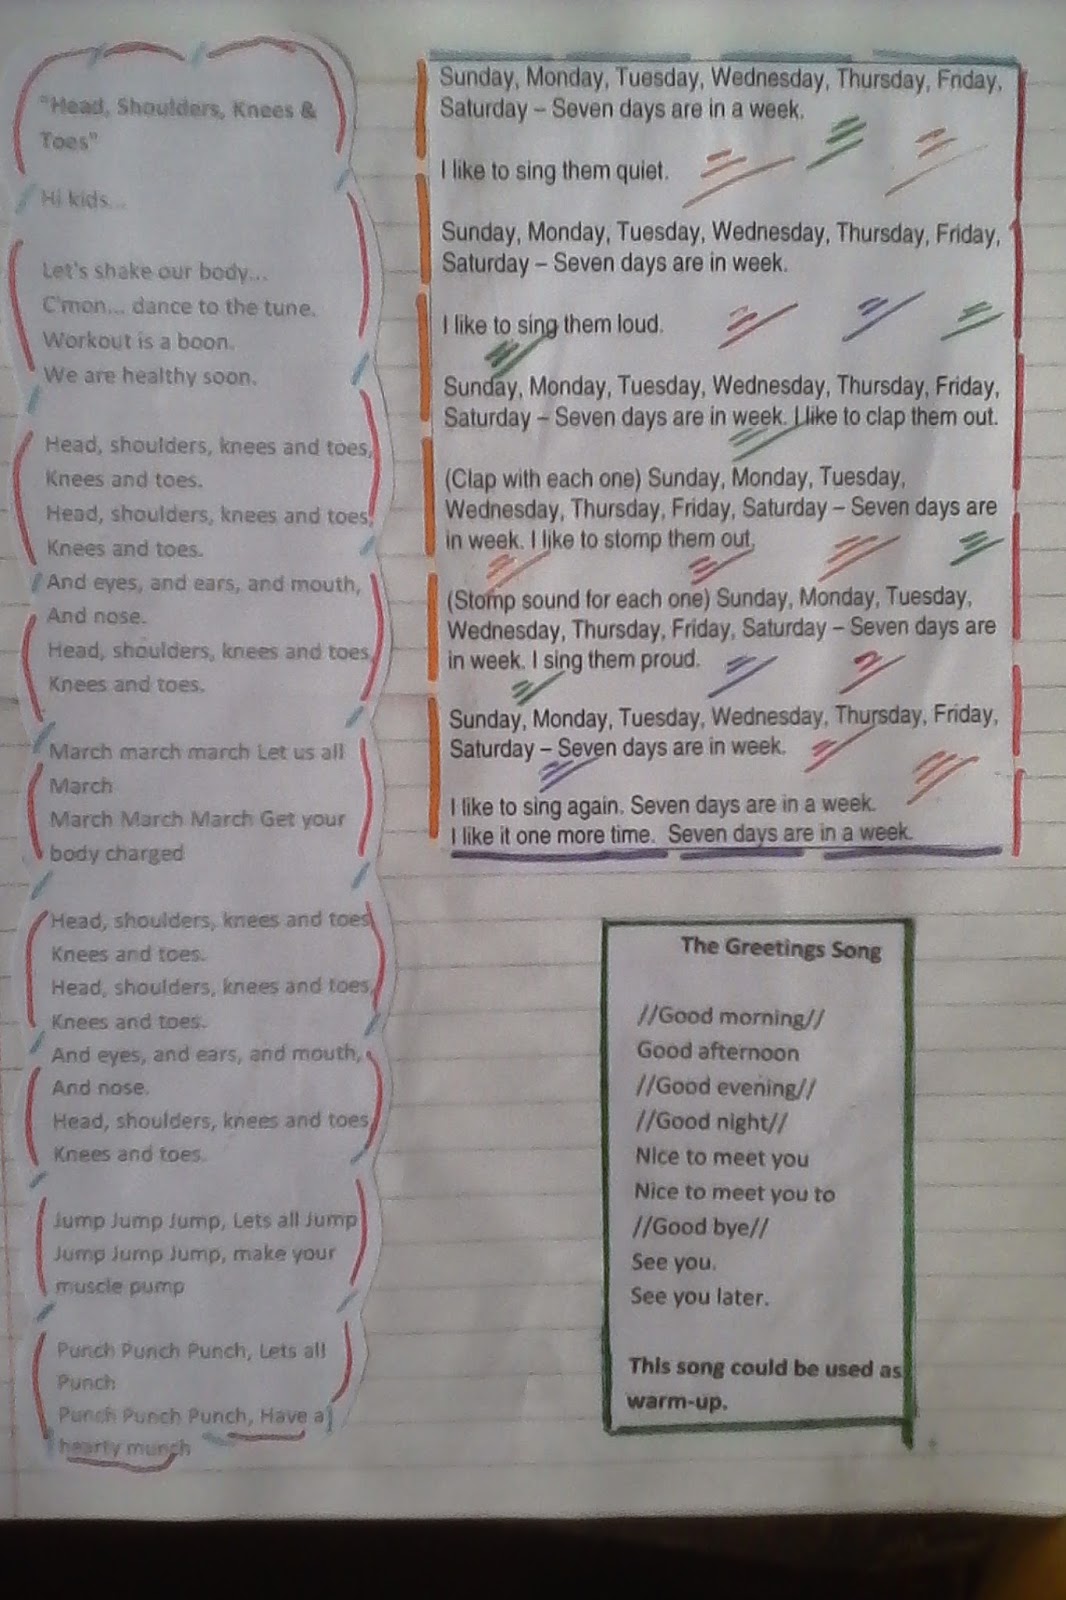 "Head, Shoulders, Knees &
Toes"
Hi kids...
Let's shake our body...
C'mon... dance to the tune.
Workout is a boon.
We are healthy soon.
Head, shoulders, knees and toes,
Knees and toes.
Head, shoulders, knees and toes,
Knees and toes.
And eyes, and ears, and mouth,
And nose.
Head, shoulders, knees and toes
Knees and toes.
March march march Let us all
March
March March March Get your
body charged
Head, shoulders, knees and toes
Knees and toes.
Head, shoulders, knees and toes,
Knees and toes.
And eyes, and ears, and mouth,
And nose.
Head, shoulders, knees and toes
Knees and toes.
Jump Jump Jump, Lets all Jump
Jump Jump Jump, make your
muscle pump
Punch Punch Punch, Lets all
Punch
Punch Punch Punch, Have a
hearty munch
Sunday, Monday, Tuesday, Wednesday, Thursday, Friday,
Saturday – Seven days are in a week.
I like to sing them quiet.
Sunday, Monday, Tuesday, Wednesday, Thursday, Friday,
Saturday – Seven days are in week.
I like to sing them loud.
Sunday, Monday, Tuesday, Wednesday, Thursday, Friday,
Saturday – Seven days are in week. I like to clap them out.
(Clap with each one) Sunday, Monday, Tuesday,
Wednesday, Thursday, Friday, Saturday – Seven days are
in week. I like to stomp them out.
(Stomp sound for each one) Sunday, Monday, Tuesday,
Wednesday, Thursday, Friday, Saturday – Seven days are
in week. I sing them proud.
Sunday, Monday, Tuesday, Wednesday, Thursday, Friday,
Saturday – Seven days are in week.
I like to sing again. Seven days are in a week.
I like it one more time. Seven days are in a week.
The Greetings Song
//Good morning//
Good afternoon
//Good evening//
//Good night//
Nice to meet you
Nice to meet you to
//Good bye//
See you.
See you later.
This song could be used as
warm-up.